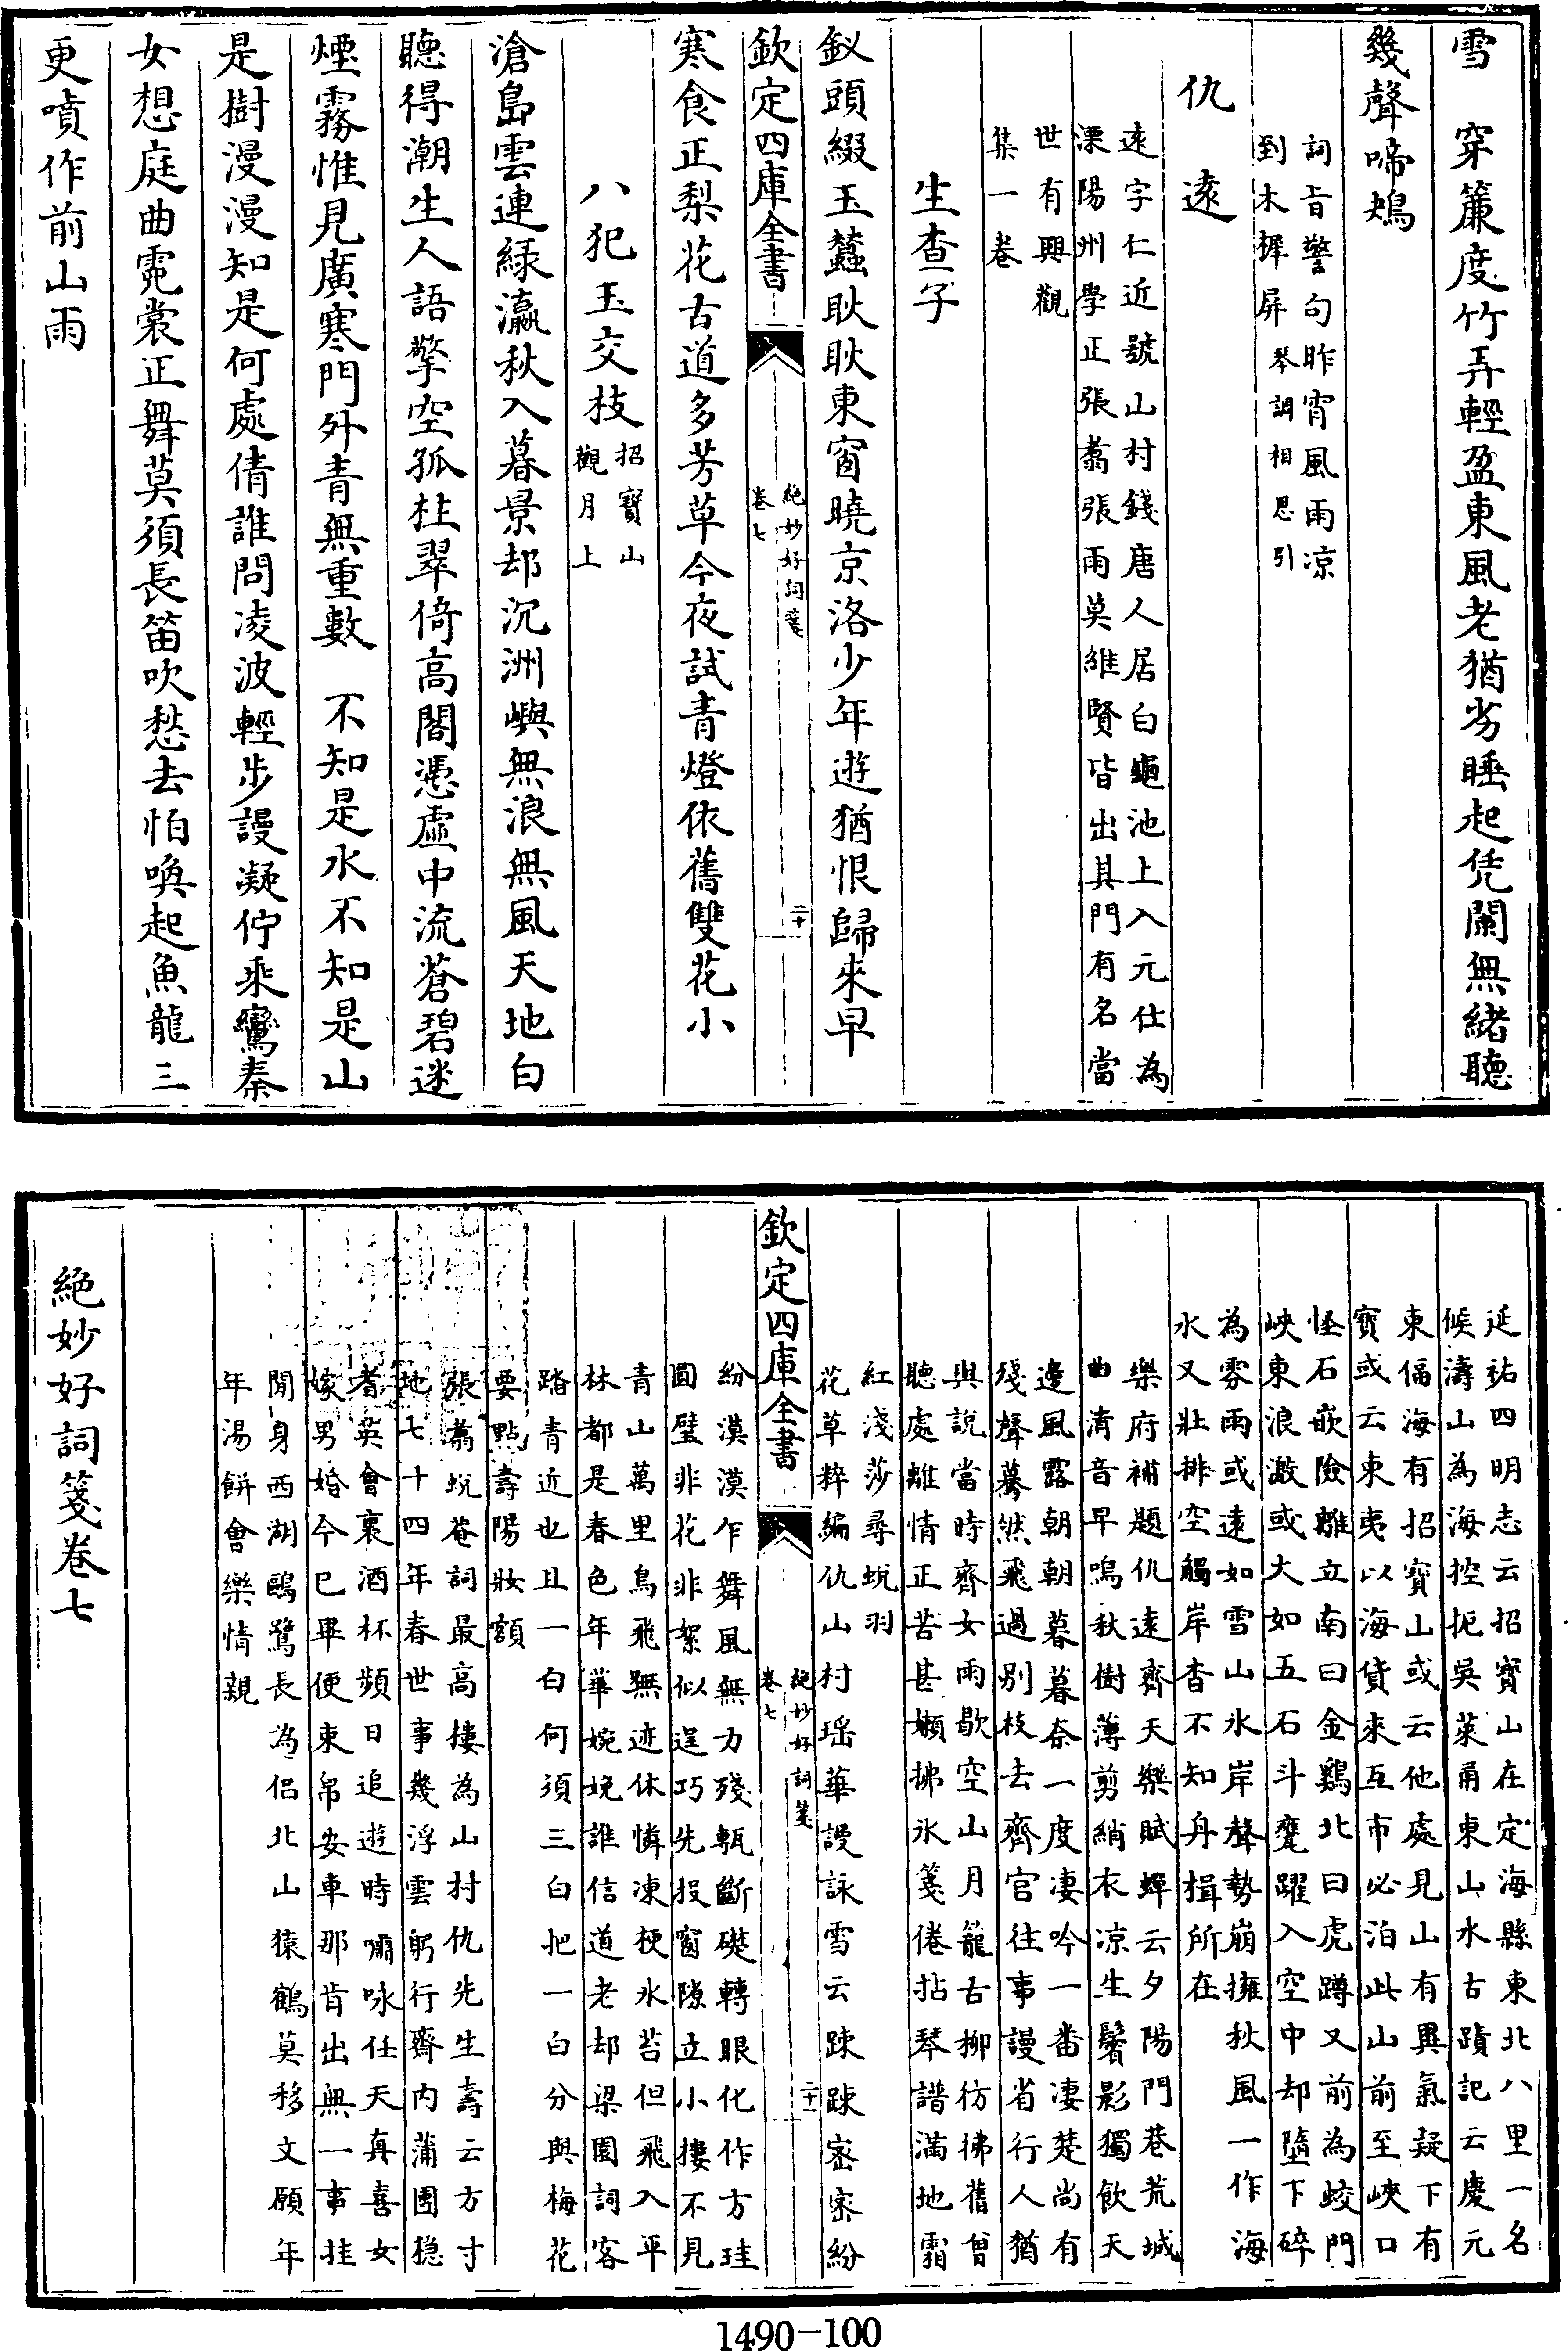 雪　穿簾度竹弄輕盈東風老猶劣睡起凭闌無緒聽
幾聲啼鴂
詞旨警句昨宵風雨凉
到木樨屏琴調相思引
仇遠
遠字仁近號山村錢唐人居白龜池上入元仕為
溧陽州學正張翥張雨莫維賢皆出其門有名當
世有興觀
集一卷
生查子
釵頭綴玉蠶耿耿東窗曉京洛少年遊猶恨歸來早
欽定四庫全書
絶妙好詞箋
卷七
二十
寒食正梨花古道多芳草今夜試青燈依舊雙花小
八犯玉交枝
招寶山
觀月上
滄島雲連緑瀛秋入暮景却沉洲嶼無浪無風天地白
聽得潮生人語擎空孤柱翠倚高閣憑虚中流蒼碧迷
煙霧惟見廣寒門外青無重數　不知是水不知是山
是樹漫漫知是何處倩誰問凌波輕步謾凝佇乘鸞秦
女想庭曲霓裳正舞莫須長笛吹愁去怕喚起魚龍三
更噴作前山雨
延祐四明志云招寶山在定海縣東北八里一名
候濤山為海控扼吳萊甬東山水古蹟記云慶元
東偪海有招寶山或云他處見山有異氣疑下有
寶或云東夷以海貨來互市必泊此山前至峽口
怪石嵌險離立南曰金鷄北曰虎蹲又前為蛟門
峽東浪激或大如五石斗甕躍入空中却墮下碎
為雰雨或遠如雪山氷岸聲勢崩擁秋風一作海
水又壯排空觸岸杳不知舟楫所在
樂府補題仇遠齊天樂賦蟬云夕陽門巷荒城
曲清音早鳴秋樹薄剪綃衣凉生鬢影獨飲天
邊風露朝朝暮暮奈一度凄吟一畨凄楚尚有
殘聲驀然飛過别枝去齊宫往事謾省行人猶
與說當時齊女雨歇空山月籠古柳彷彿舊曾
聽處離情正苦甚嬾拂氷箋倦拈琴譜滿地霜
紅淺莎尋蜕羽
花草粹編仇山村瑶華謾詠雪云踈踈密密紛
欽定四庫全書
絶妙好詞箋
卷七
二十一
紛漠漠乍舞風無力殘甎斷礎轉眼化作方珪
圓璧非花非絮似逞巧先投窗隙立小樓不見
青山萬里鳥飛無迹休憐凍梗氷苔但飛入平
林都是春色年華婉娩誰信道老却梁園詞客
踏青近也且一白何須三白把一白分與梅花
要點壽陽妝額
張翥蜕菴詞最高樓為山村仇先生壽云方寸
地七十四年春世事幾浮雲躬行齋内蒲團穏
耆英會裏酒杯頻日追遊時嘯咏任天真喜女
嫁男婚今已畢便束帛安車那肯出無一事挂
閒身西湖鷗鷺長為侣北山猿鶴莫移文願年
年湯餅會樂情親
絶妙好詞箋卷七
1490-100